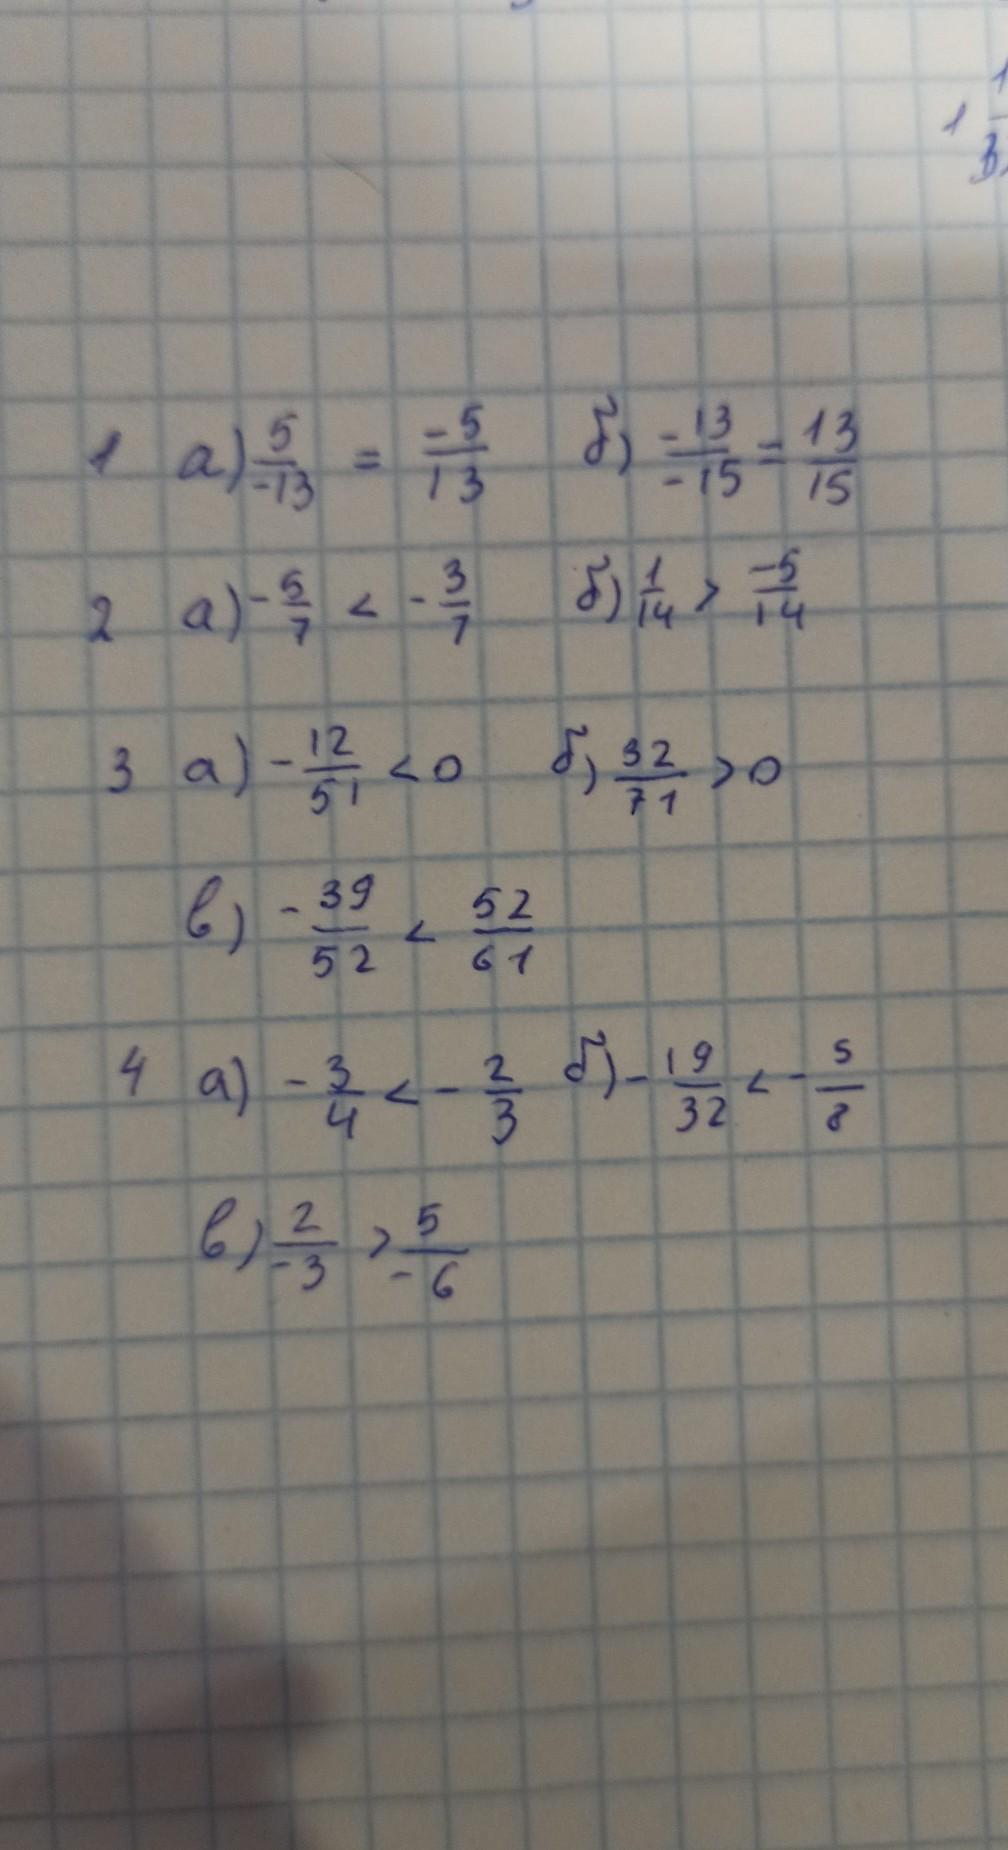 1 а) 5/-13 = -5/13 б) -13/-15 = 13/15
2 а) -5/7 < -3/7 б) 1/14 > -5/14
3 а) -12/51 < 0 б) 32/71 > 0
в) -39/52 < 52/61
4 а) -3/4 < -2/3 б) -19/32 < -5/8
в) 2/-3 > 5/-6